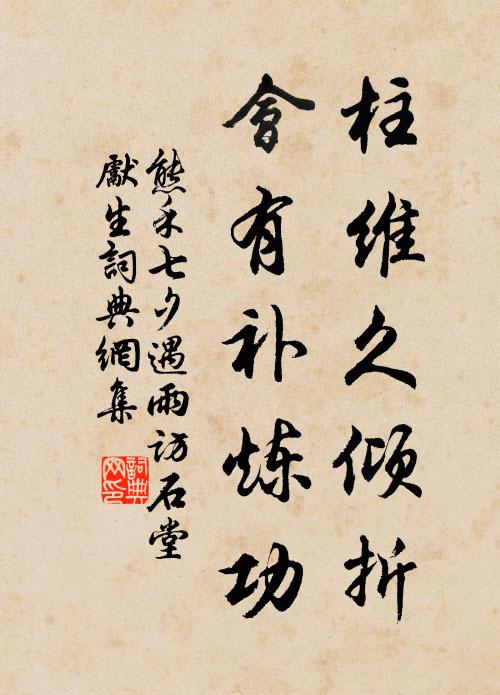 柱維久傾折
會有补炼功
熊禾七夕遇雨访石堂
獻生詞典網集
詞典網印